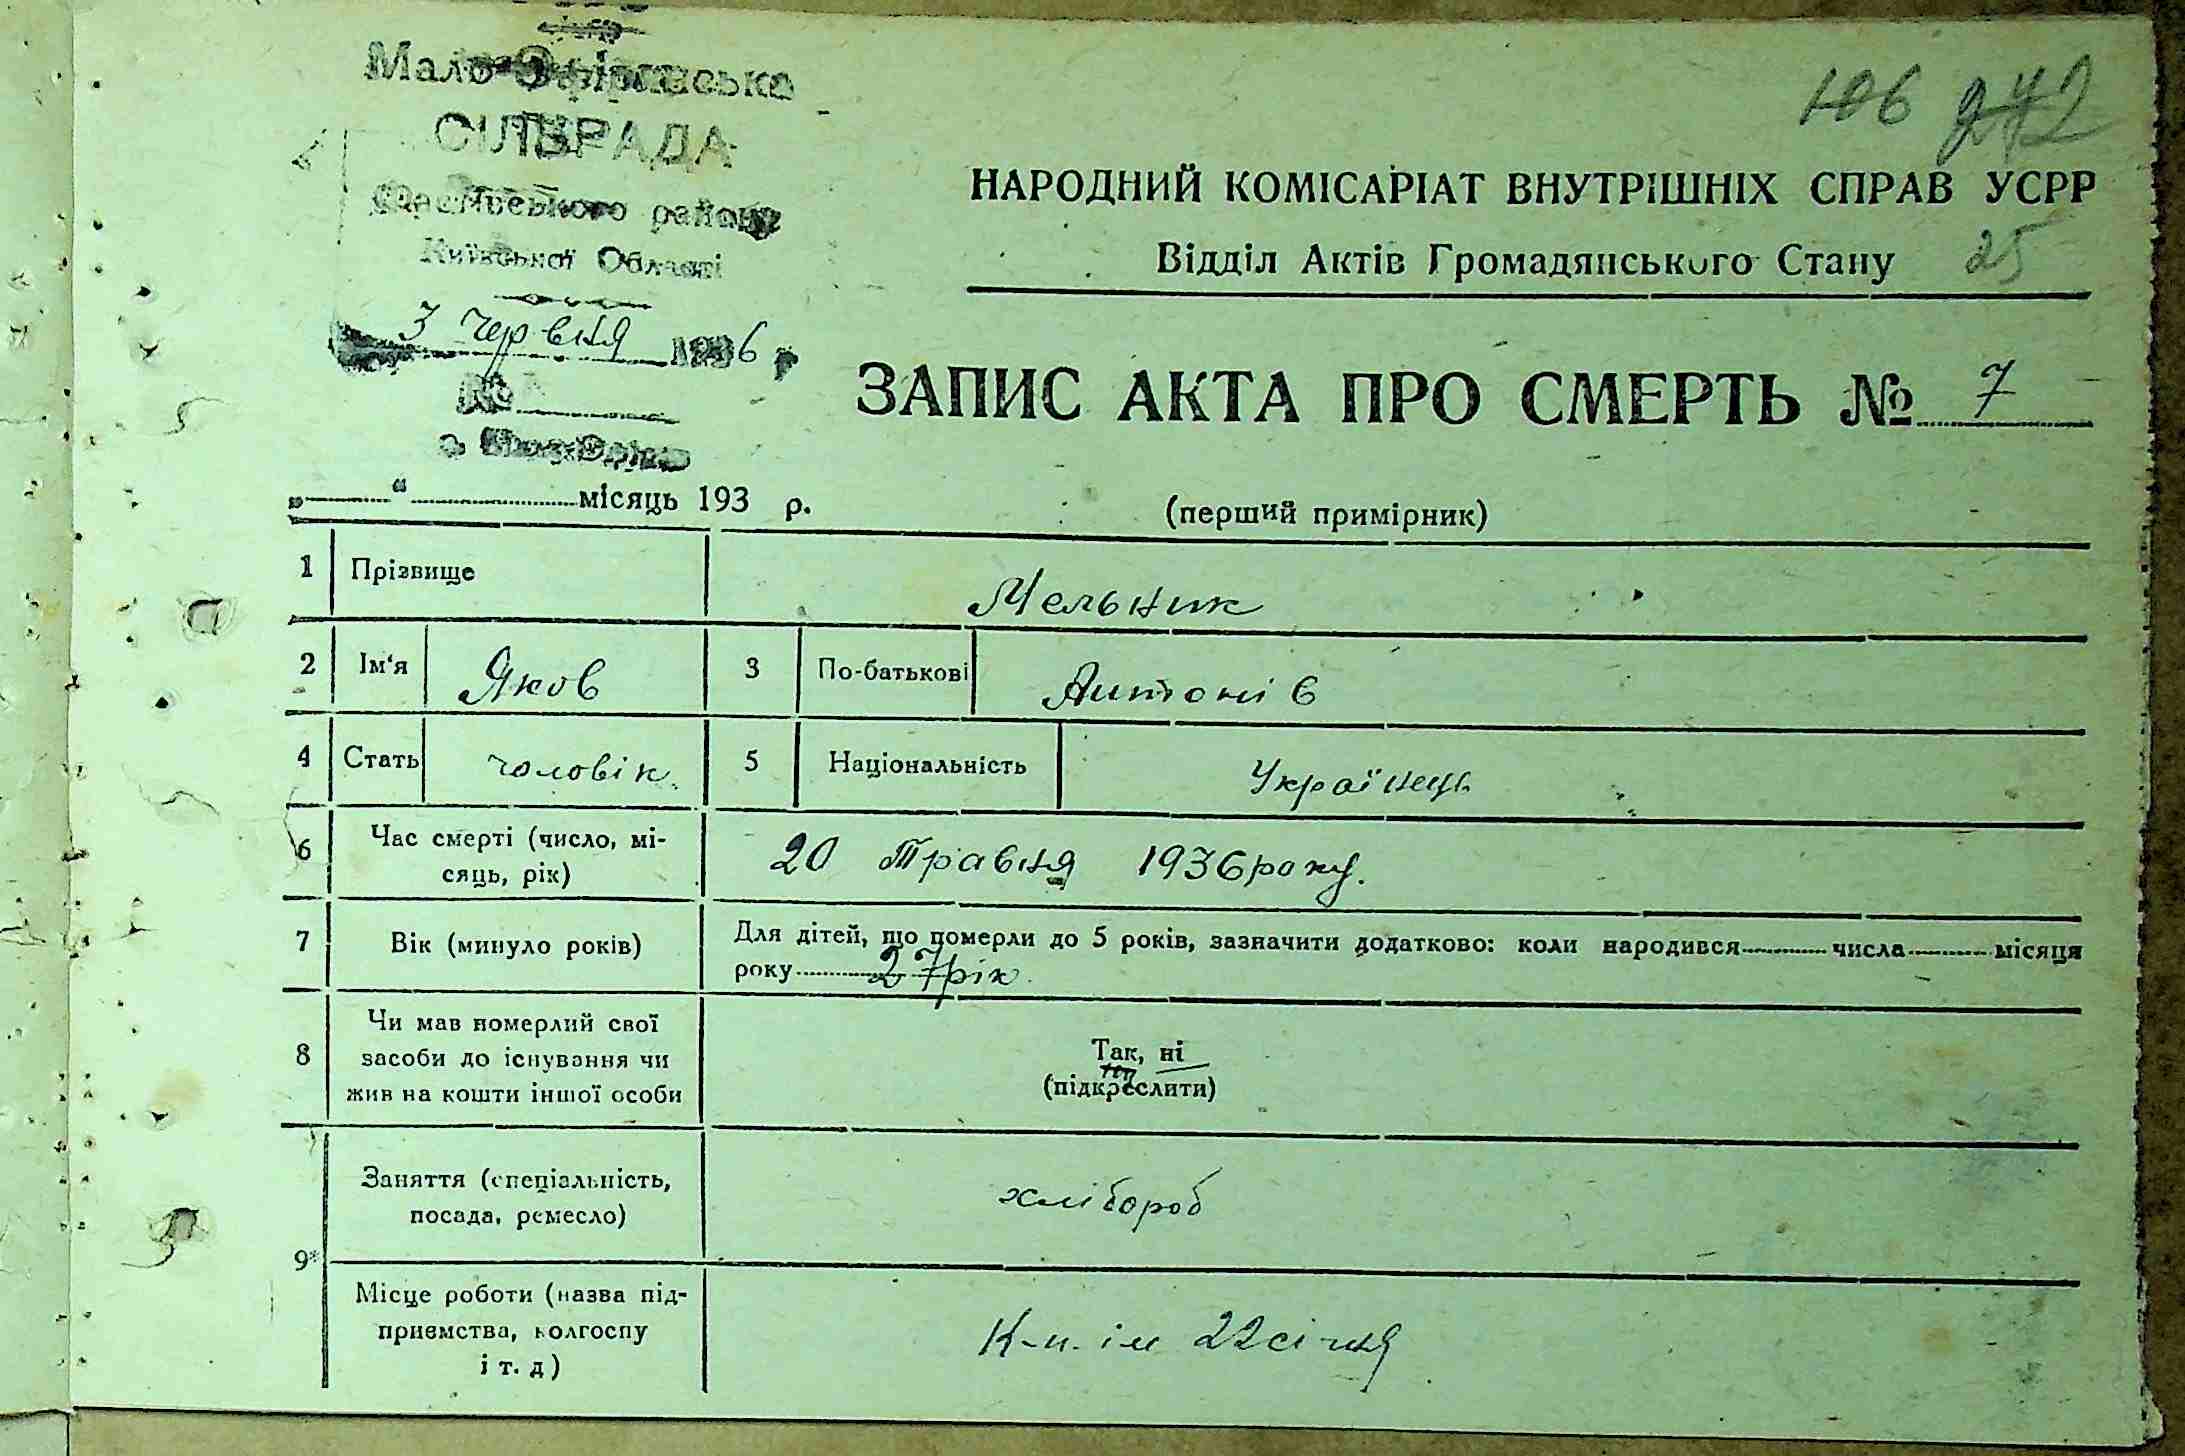 СІЛЬРАДА
району
Київської Області
3 червня 1936 р
№
с.
106 242
НАРОДНИЙ КОМІСАРІАТ ВНУТРІШНІХ СПРАВ УСРР
Відділ Актів Громадянського Стану 25
ЗАПИС АКТА ПРО СМЕРТЬ № 7
„ “ місяць 193 р.
(перший примірник)
1 Прізвище Мельник
2 Ім‘я Яков 3 По-батькові Антонів
4 Стать чоловік. 5 Національність Українець
6 Час смерті (число, мі-
сяць, рік) 20 Травня 1936 року.
7 Вік (минуло років) Для дітей, що померли до 5 років, зазначити додатково: коли народився числа місяця
року 27 рік.
8 Чи мав померлий свої
засоби до існування чи
жив на кошти іншої особи
Так, ні
(підкреслити)
9* Заняття (спеціальність,
посада, ремесло) хлібороб
Місце роботи (назва під-
приємства, колгоспу
і т. д) К-п. ім 22 січня